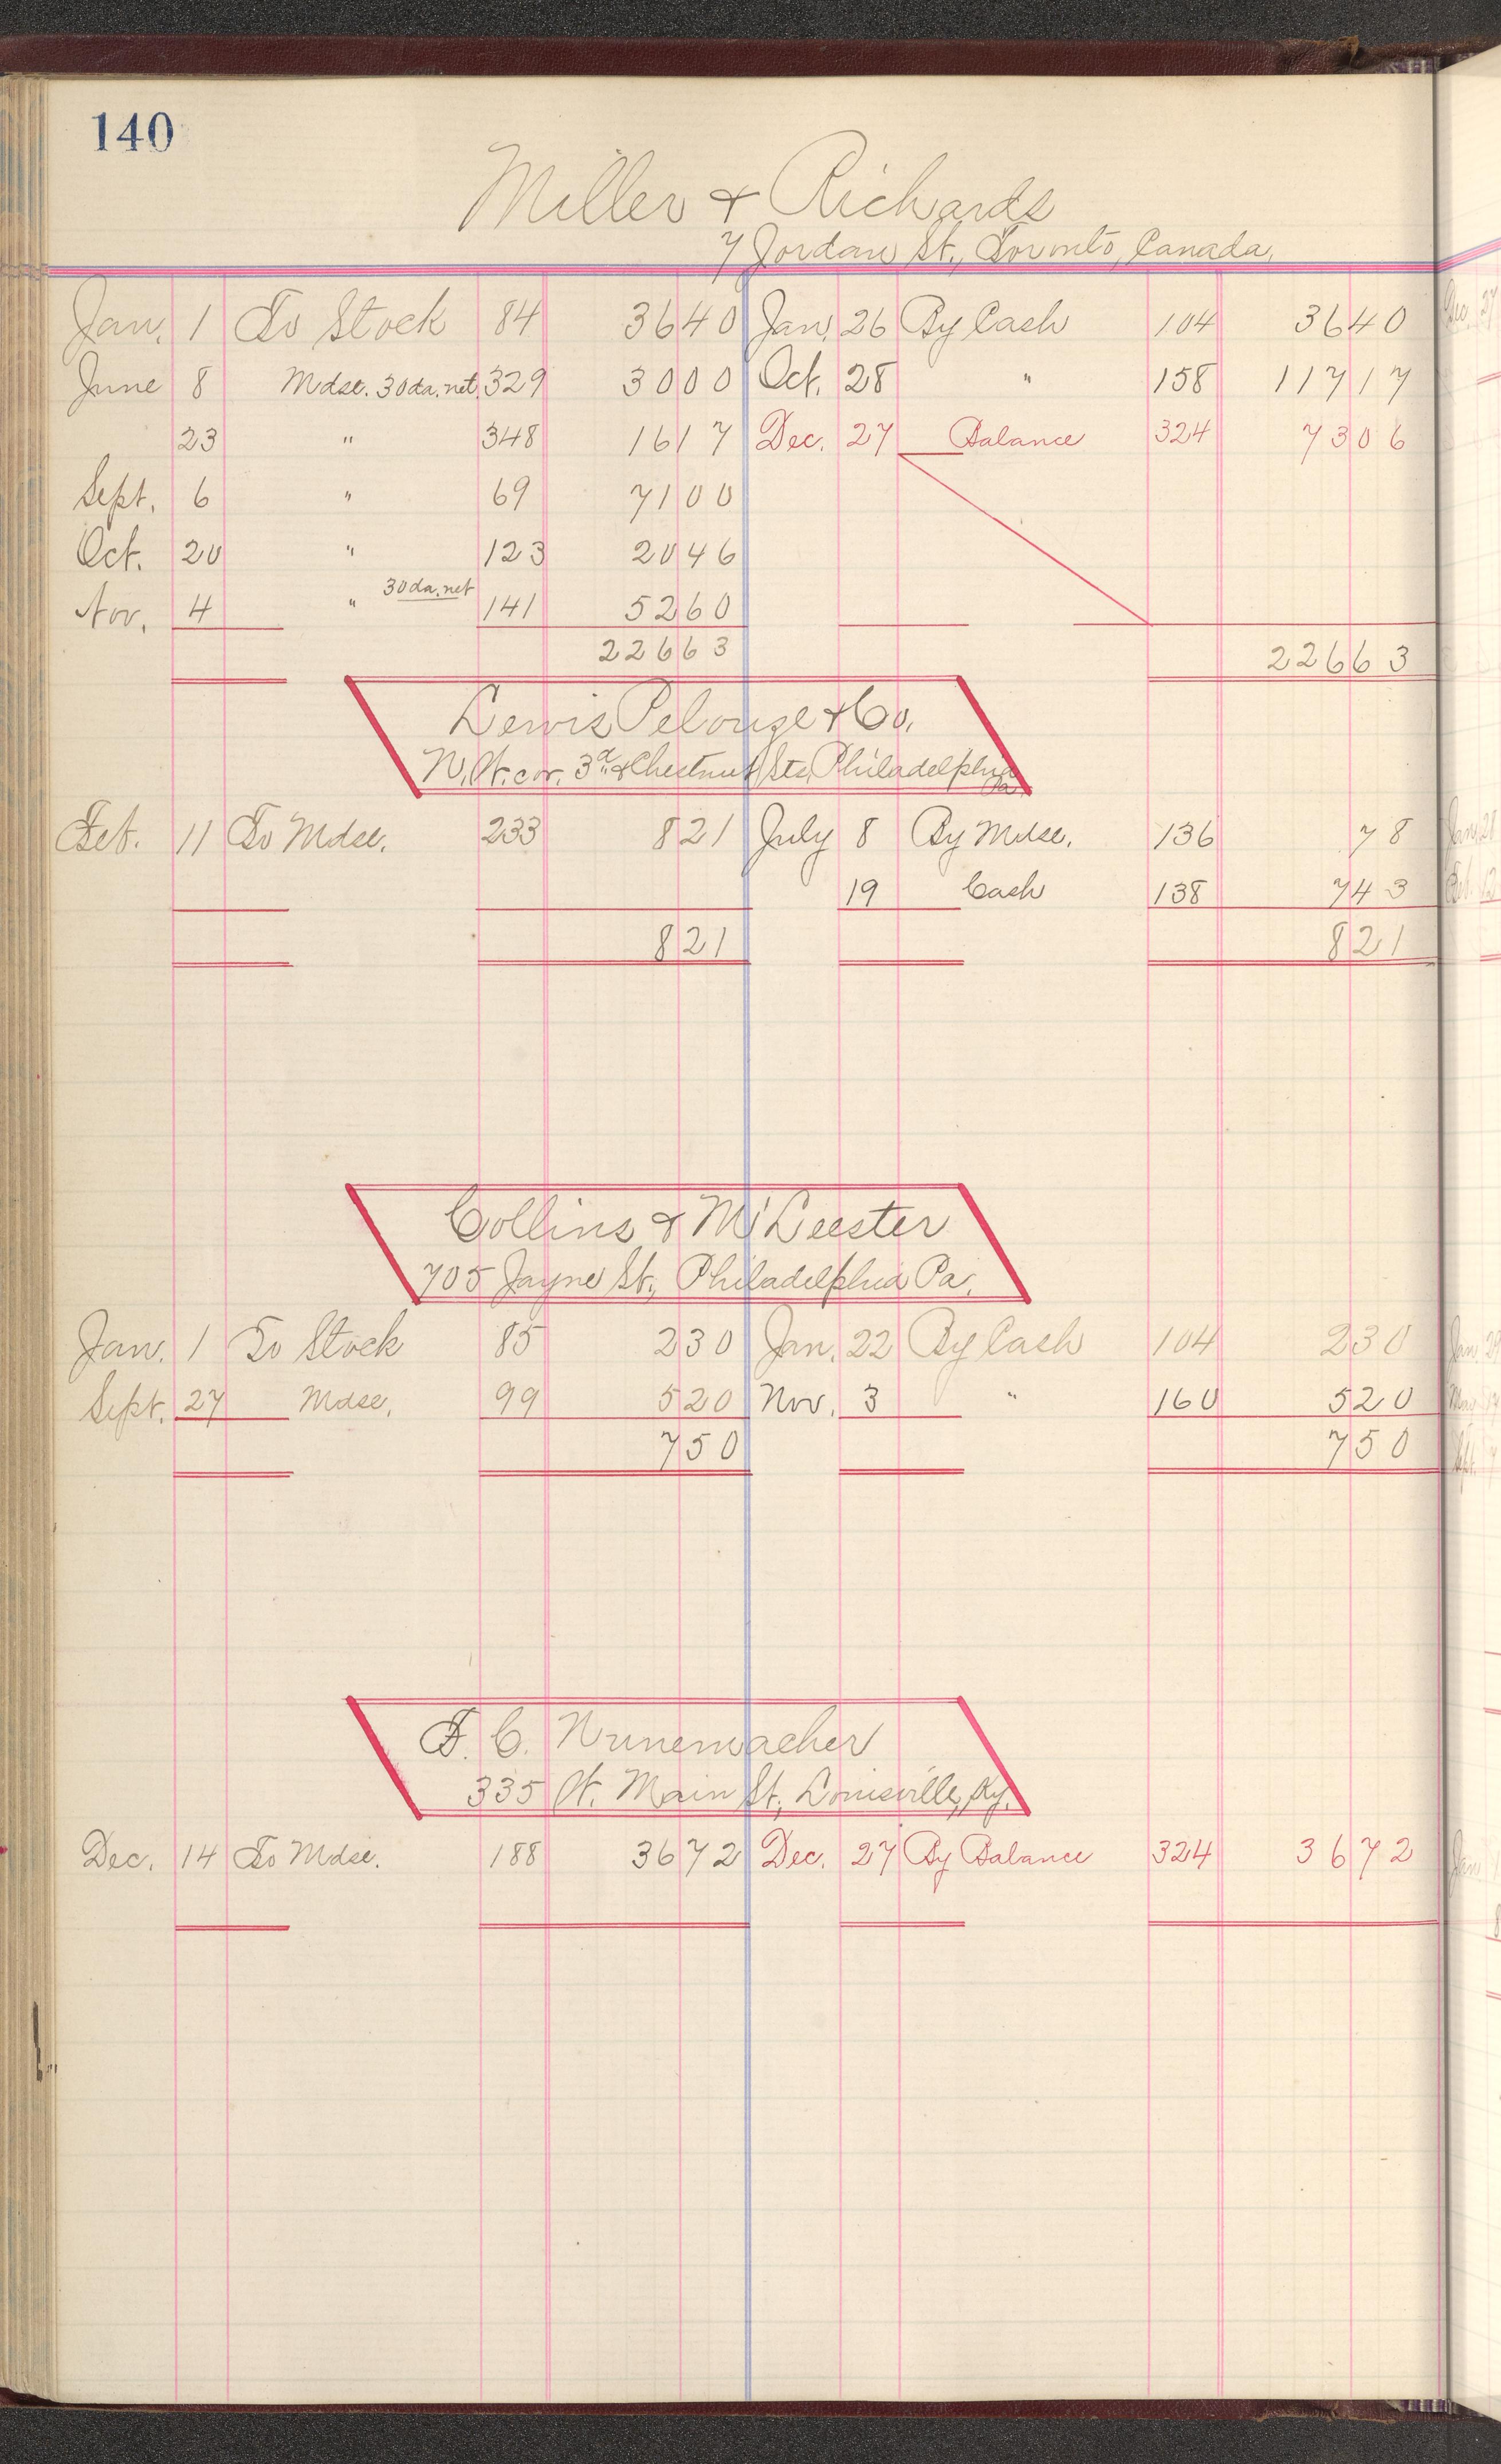 140
Miller & Richards
7 Jordan St., Toronto, Canada.
Jan. 1 To Stock 84 36 40 Jan. 26 By Cash 104 36 40
June 8 Mdse. 30 da. net. 329 30 00 Oct. 28 " 158 117 17
23 " 348 16 17 Dec. 27 Balance 324 73 06
Sept. 6 " 69 71 00
Oct. 20 " 123 20 46
Nov. 4 " 30 da. net 141 52 60
226 63 226 63
Lewis Pelouze & Co.
N.W. cor. 3d & Chestnut Sts. Philadelphia Pa.
Feb. 11 To Mdse. 233 8 21 July 8 By Mdse. 136 78
19 Cash 138 7 43
8 21 8 21
Collins & M'Leester
705 Jayne St., Philadelphia Pa.
Jan. 1 To Stock 85 2 30 Jan. 22 By Cash 104 2 30
Sept. 27 Mdse. 99 5 20 Nov. 3 " 160 5 20
7 50 7 50
F. C. Nunemacher
335 W. Main St., Louisville, Ky.
Dec. 14 To Mdse. 188 36 72 Dec. 27 By Balance 324 36 72